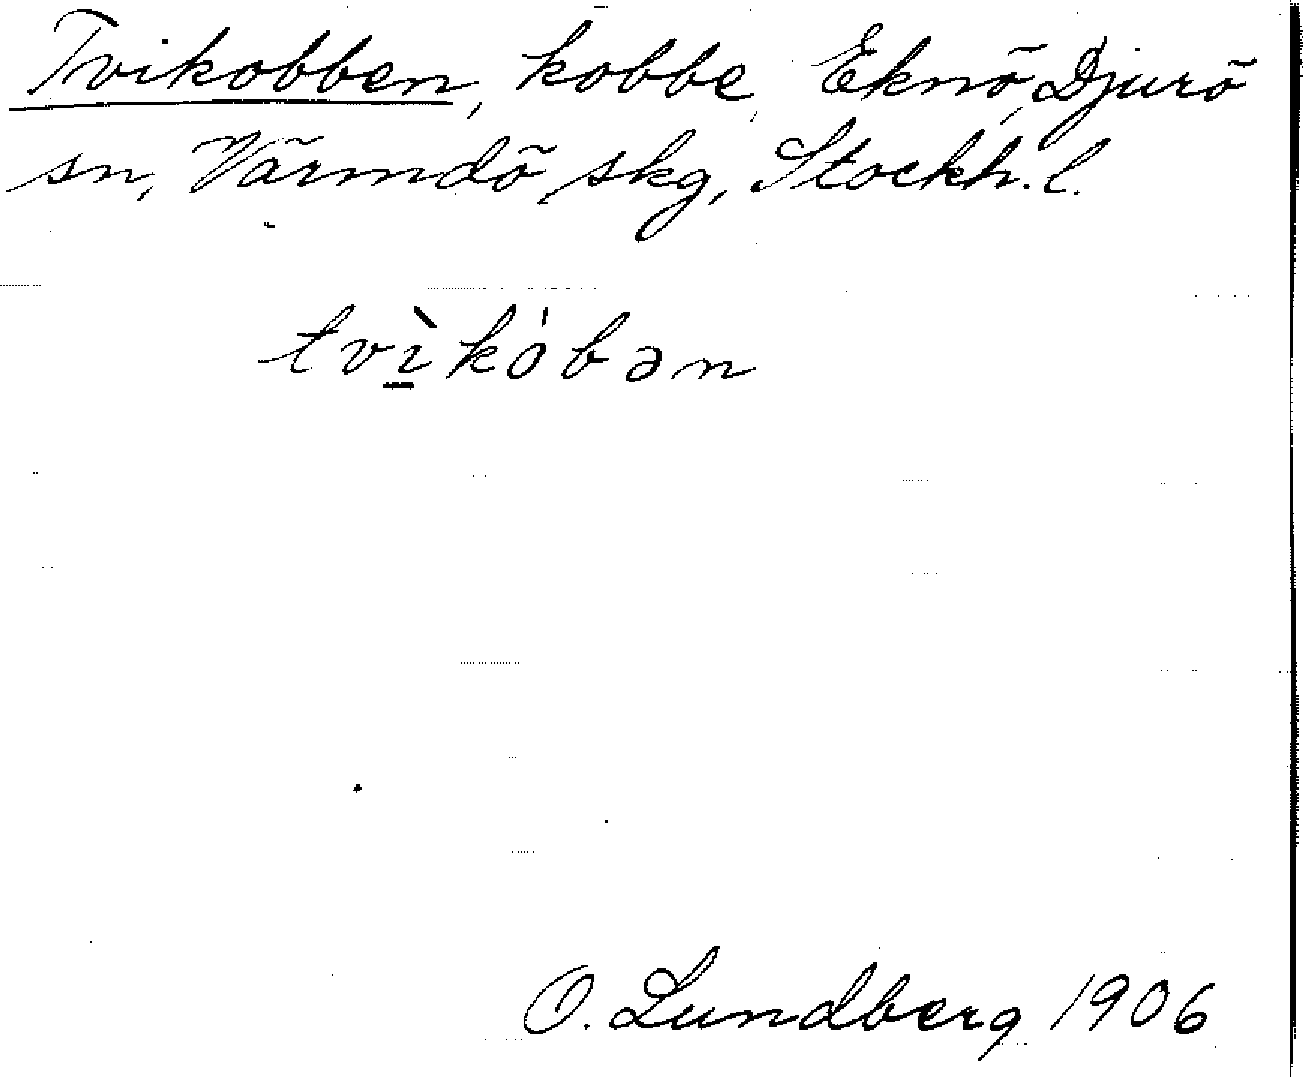 Tvikobben, kobbe, Eknö, Djurö
sn, Värmdö skg, Stockh. l.
tvì̲kóbən
O. Lundberg 1906